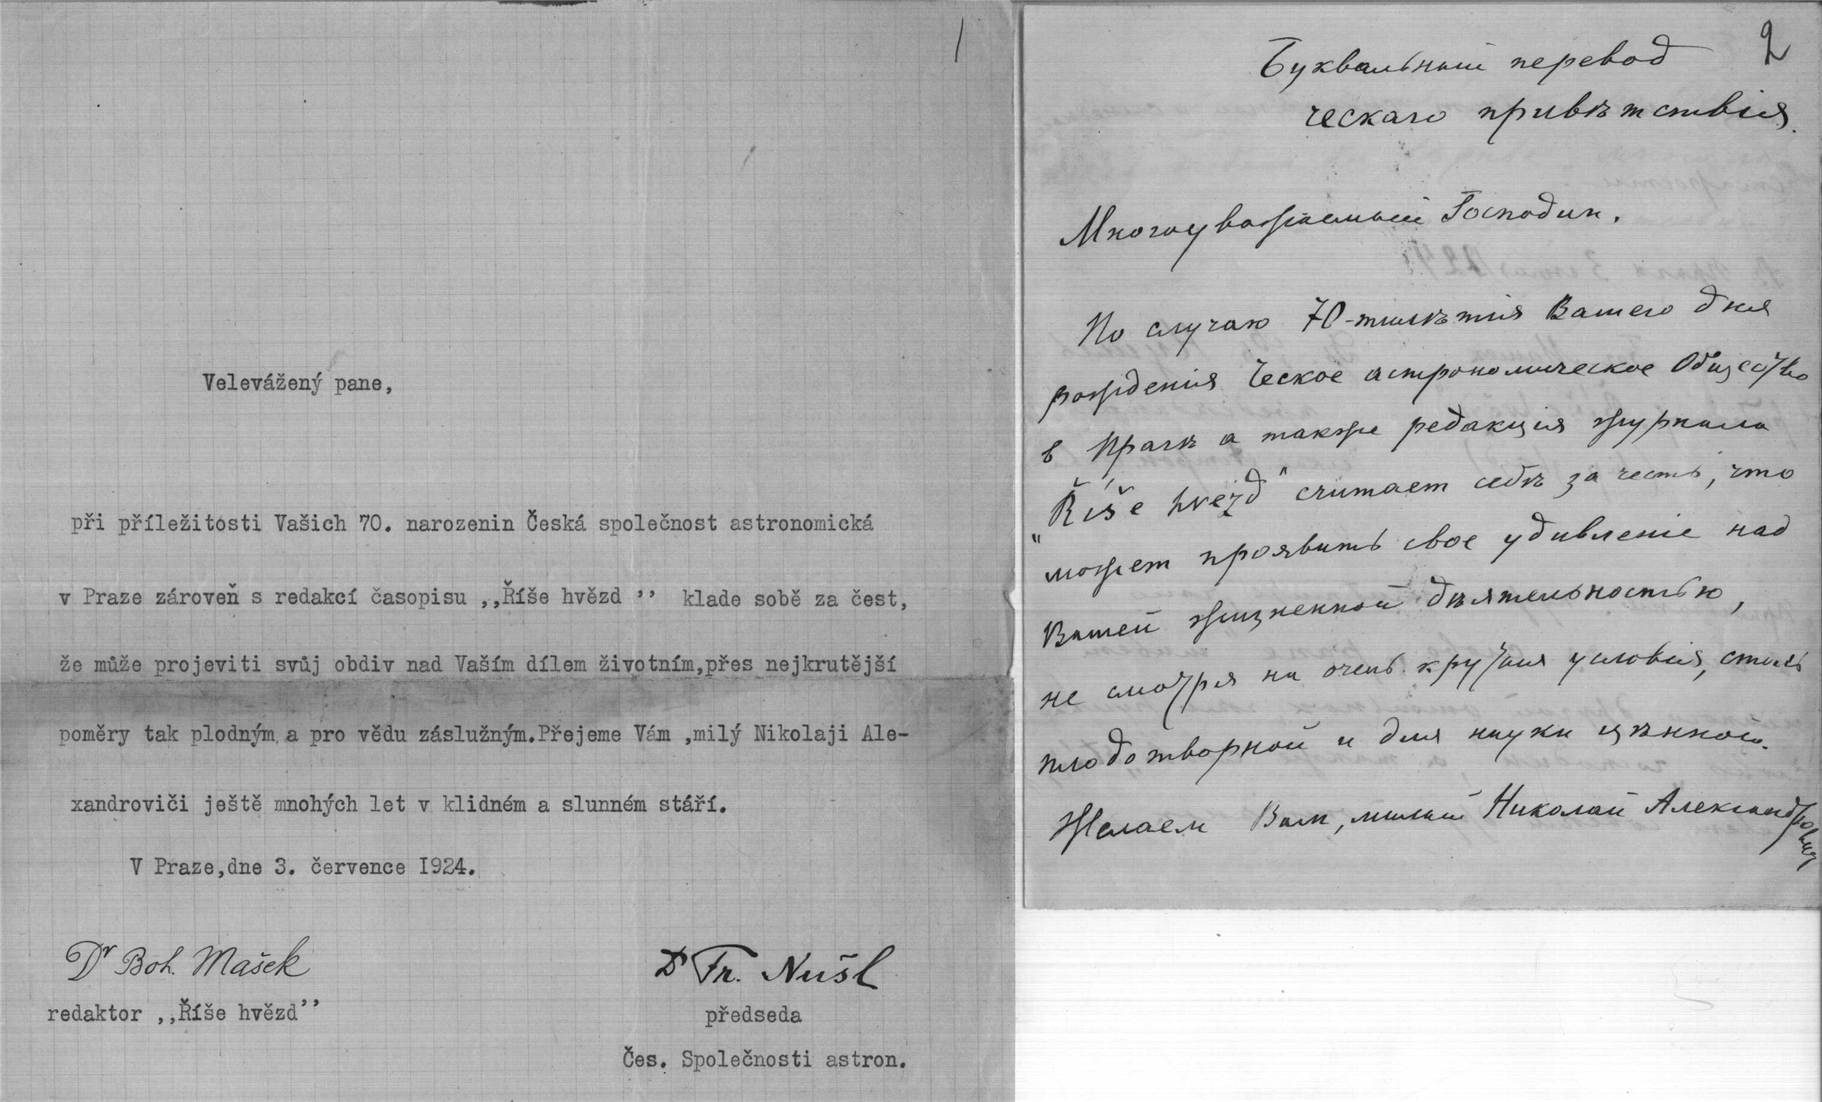 1
Velevážený pane,
při příležitosti Vašich 70. narozenin Česká společnost astronomická
v Praze zároveň s redakcí časopisu ,,Říše hvězd ’’ klade sobě za čest,
že může projeviti svůj obdiv nad Vaším dílem životním,přes nejkrutější
poměry tak plodným a pro vědu záslužným.Přejeme Vám ,milý Nikolaji Ale-
xandroviči ještě mnohých let v klidném a slunném stáří.
V Praze,dne 3. července I924.
Dr Boh. Mašek
redaktor ,,Říše hvězd’’
Dr Fr. Nušl
předseda
Čes. Společnosti astron.
2
Буквальный перевод
ческаго привѣтствія.
Многоуважаемый Господин.
По случаю 70-тилѣтія Вашего дня
рождения Ческое астрономическое Общество
в Прагѣ а также редакция журнала
"Říše hvězd" считает себѣ за честь, что
может проявить свое удивленіе над
Вашей жизненной дѣятельностью,
не смотря на очень крутыя условия, столь
плодотворной и для науки цѣнной.
Желаем Вам, милый Николай Александрович